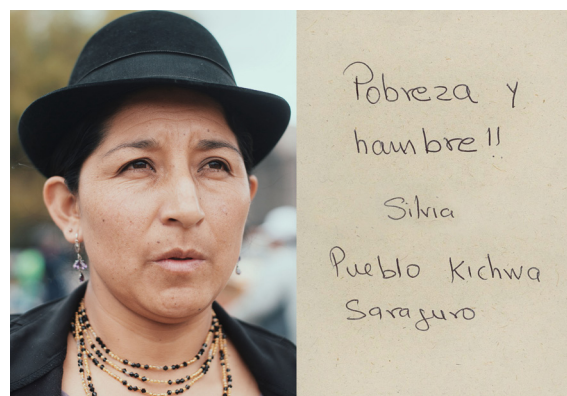 Pobreza y
hambre!!
Silvia
Pueblo Kichwa
Saraguro